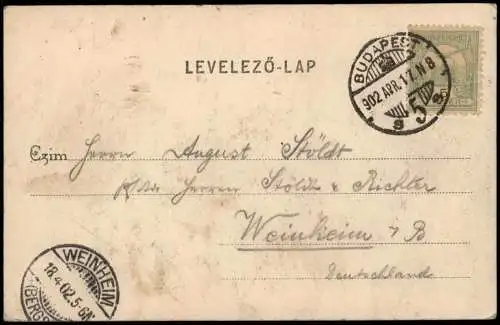 LEVELEZŐ-LAP
BUDAPEST
902 APR. 17. N 8
5
Czim Herrn August Stöldt
Herren Stöldt & Richter
Weinheim a/B
Deutschland
WEINHEIM
18.4.02.5-6N
(BERGS